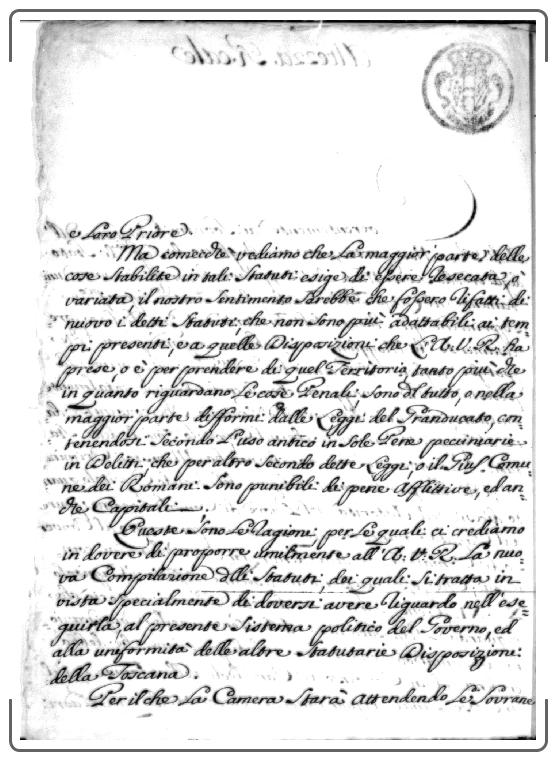 e Loro Priore.
Ma comecchè vediamo che La maggior parte delle
cose Stabilite in tali Statuti esige di essere resecata, o
variata, il nostro Sentimento Sarebbe che fossero rifatti di
nuovo i detti Statuti, che non Sono più adattabili ai tem-
pi presenti, e a quelle Disposizioni che L'A. V. R. ha
prese, o è per prendere di quel Territorio, tanto più che
in quanto riguardano Le cose Penali Sono del tutto, o nella
maggior parte difformi dalle Leggi del Granducato, con-
tenendosi Secondo L'uso antico in Sole Pene pecuniarie
in Delitti che per altro Secondo dette Leggi, o il Gius Comu-
ne dei Romani Sono punibili di pene Afflittive, ed an-
che Capitali.
Queste Sono Le ragioni per Le quali ci crediamo
in dovere di proporre umilmente all'A. V. R. La nuo-
va Compilazione dlli Statuti, dei quali Si tratta in
vista Specialmente di doversi avere riguardo nell'ese-
guirla, al presente Sistema politico del Governo, ed
alla uniformità delle altre Statutarie Disposizioni
della Toscana.
Per il che La Camera Starà Attendendo Le Sovrane